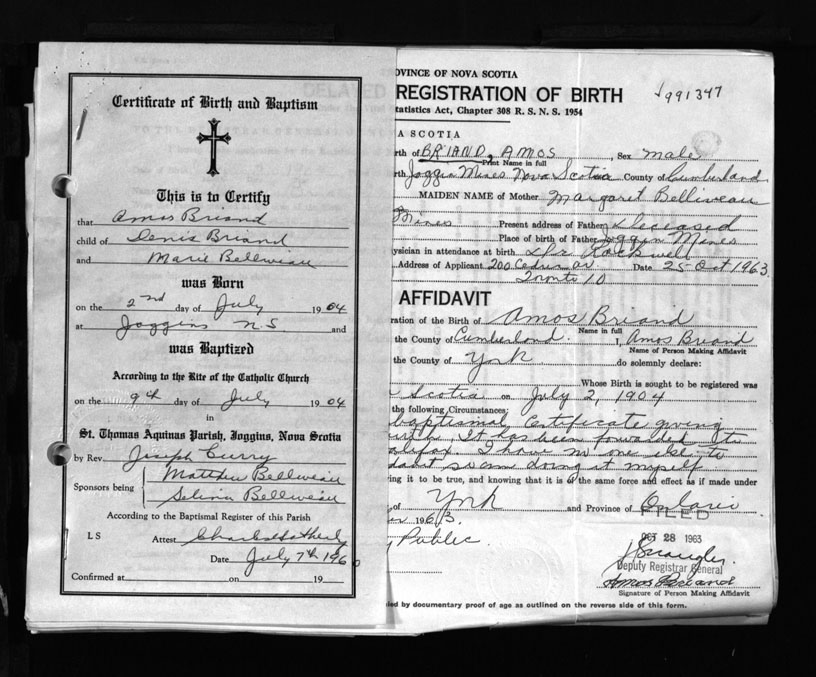 Certificate of Birth and Baptism
This is to Certify
that Amos Briand
child of Denis Briand
and Marie Belliveau
was Born
on the 2nd day of July 1904
at Joggins N S and
was Baptized
According to the Rite of the Catholic Church
on the 9th day of July 1904
in
St. Thomas Aquinas Parish, Joggins, Nova Scotia
by Rev. Joseph Curry
Sponsors being Matthew Belliveau
Selina Belliveau
According to the Baptismal Register of this Parish
L S Attest
Date July 7th 196
Confirmed at on 19
OVINCE OF NOVA SCOTIA
DELAYED REGISTRATION OF BIRTH 991347
tatistics Act, Chapter 308 R. S. N. S. 1954
A SCOTIA
rth of BRIAND, AMOS, Sex male
Print Name in full
rth Joggin Mines Nova Scotia County of Cumberland
MAIDEN NAME of Mother Margaret Belliveau
Mines Present address of Father Deceased
Place of birth of Father Joggin Mines
ysician in attendance at birth Dr. Rockwell
Address of Applicant 200 Date 25 Oct 1963
Toronto 10
AFFIDAVIT
ration of the Birth of Amos Briand
Name in full
the County of Cumberland. I, Amos Briand
Name of Person Making Affidavit
the County of York do solemnly declare:
Whose Birth is sought to be registered was
Scotia on July 2, 1904
the following Circumstances:
baptismal Certificate giving
It has been forwarded to
I have no one else to
so am doing it myself
ing it to be true, and knowing that it is of the same force and effect as if made under
of York and Province of Ontario
1963. FILED
Public. OCT 28 1963
Deputy Registrar General
Amos Briand
Signature of Person Making Affidavit
ied by documentary proof of age as outlined on the reverse side of this form.